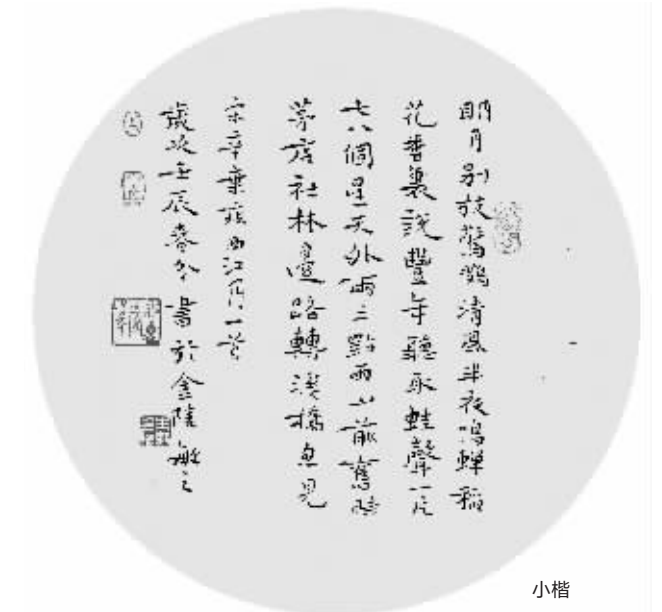 明月别枝驚鵲清風半夜鳴蟬稻
花香裏說豐年聽取蛙聲一片
七八個星天外兩三點雨山前舊時
茅店社林邊路轉溪橋忽見
宋辛棄疾西江月一首
歲次壬辰春分書於金陵敏之
小楷